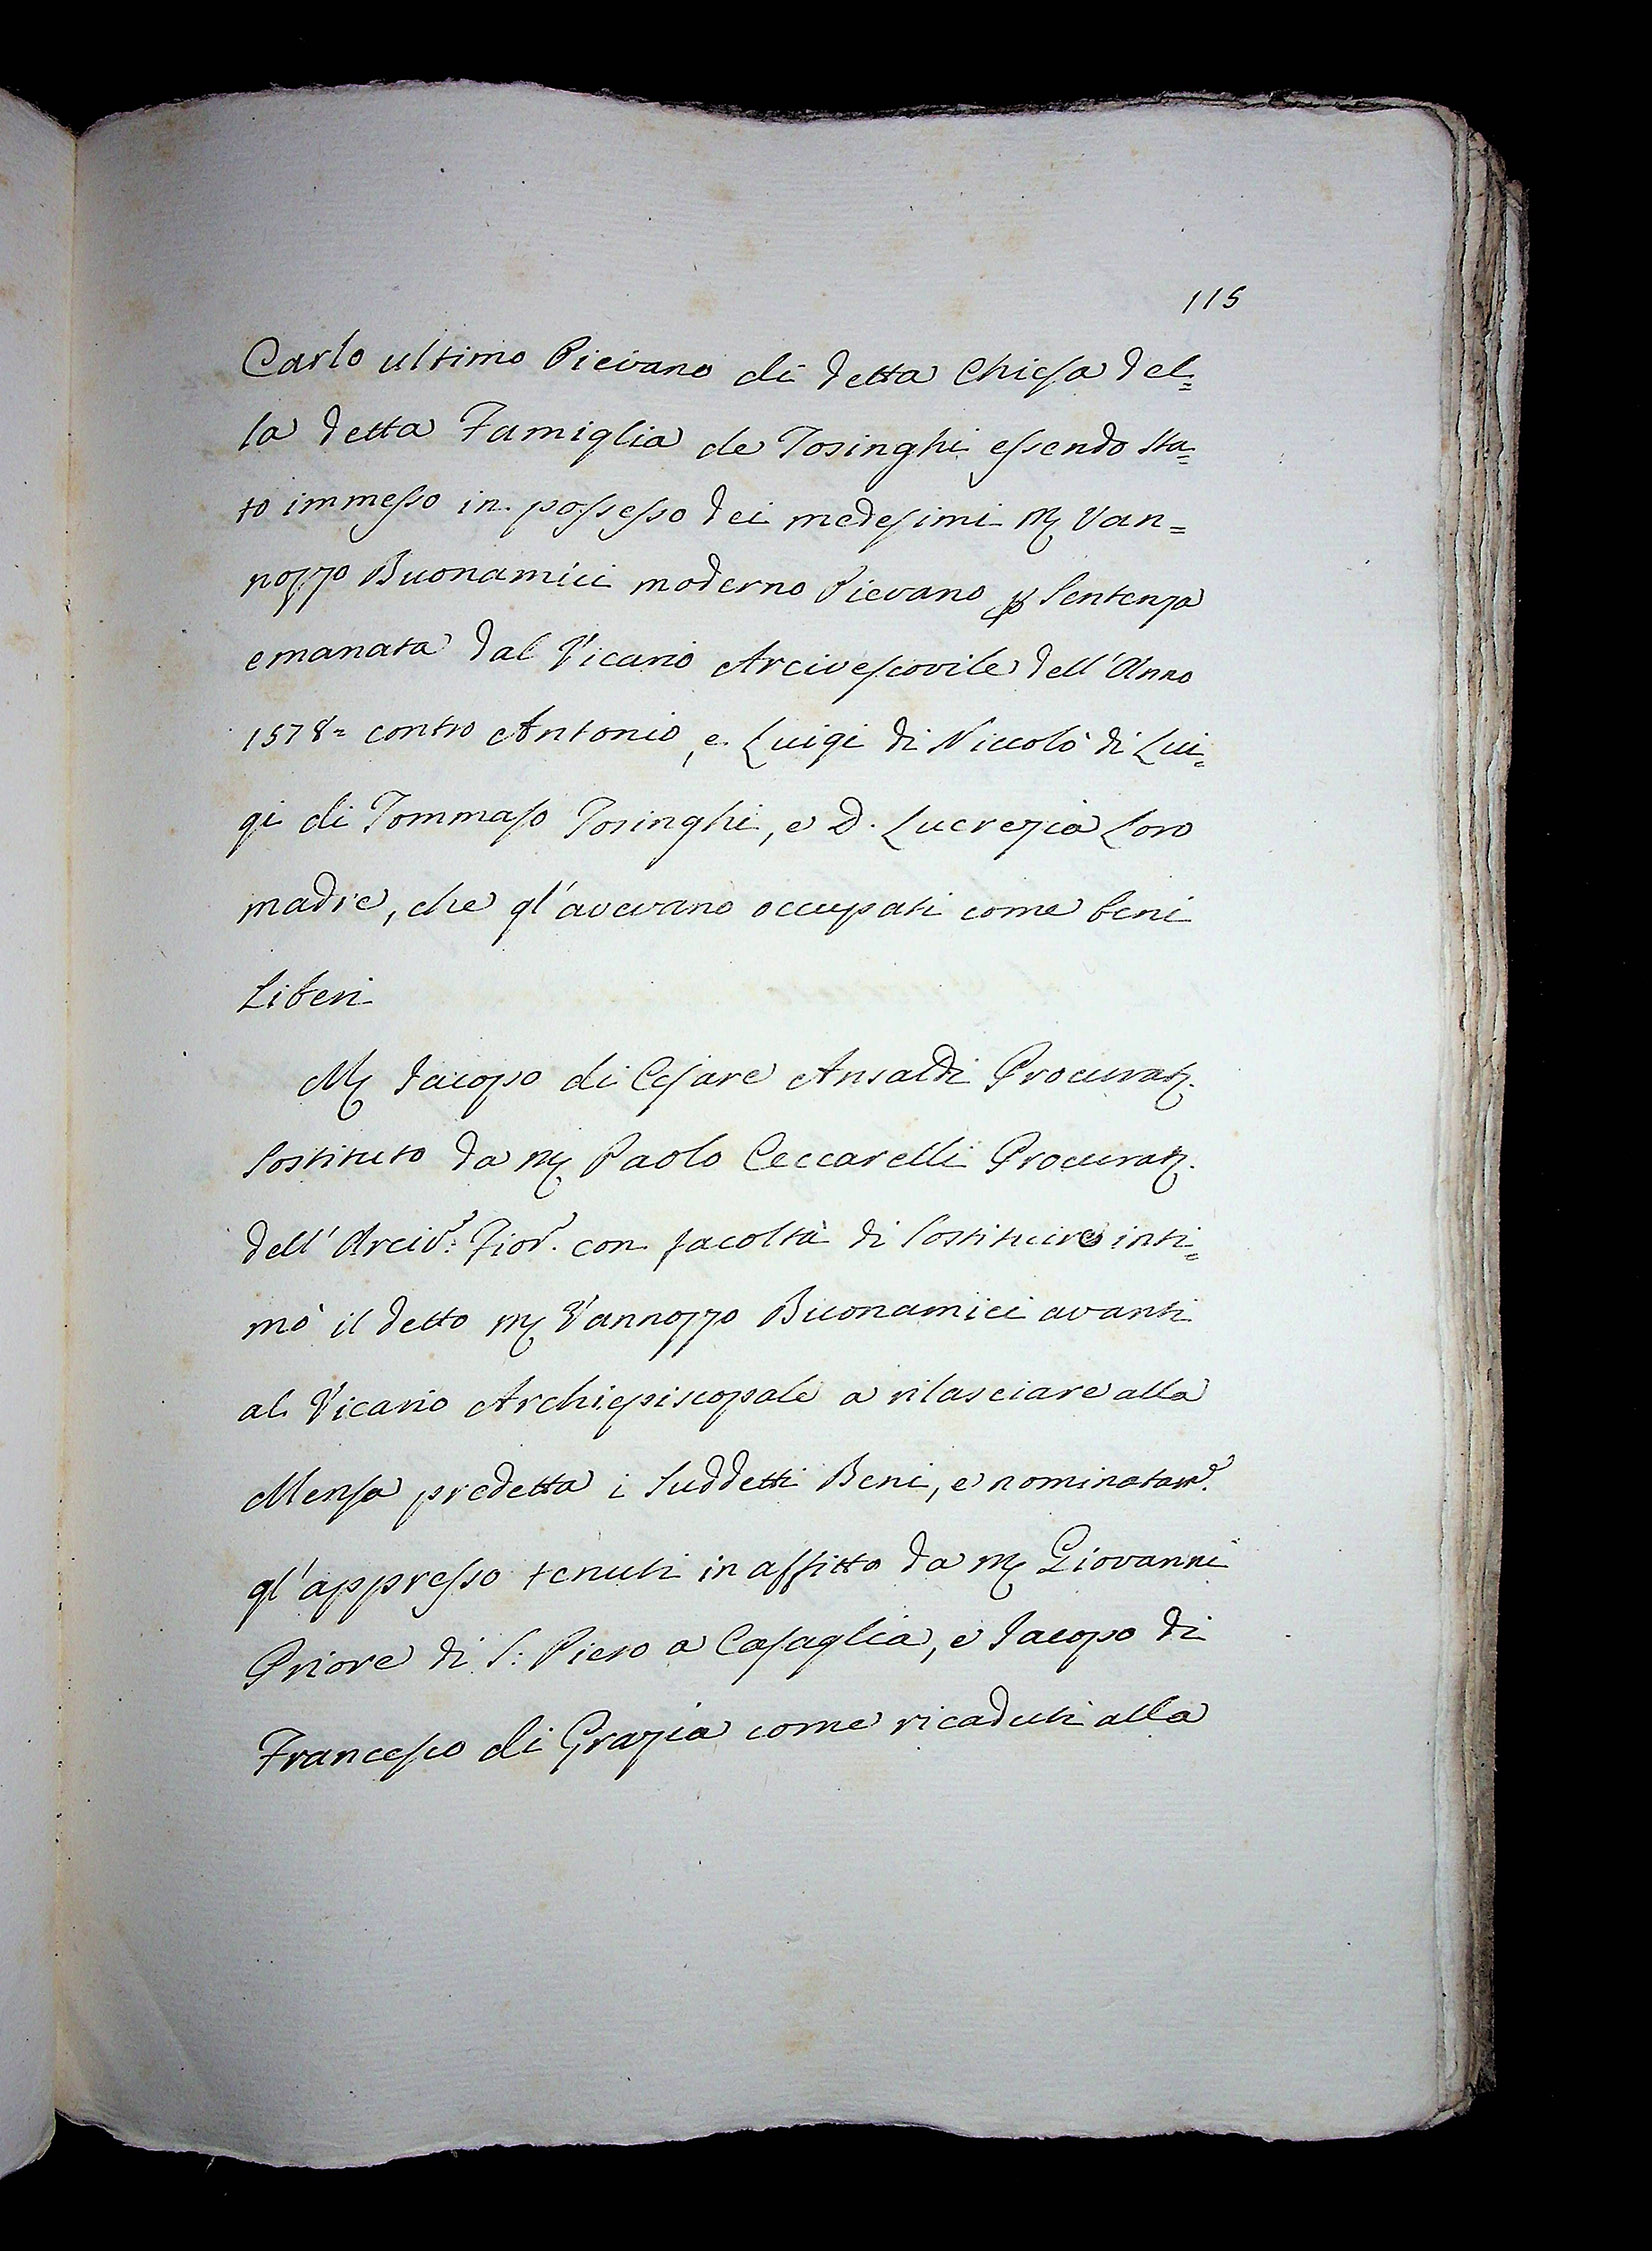 115
Carlo ultimo Pievano di detta Chiesa del=
la detta Famiglia de Tosinghi essendo sta=
to immesso in possesso dei medesimi M Van=
nozzo Buonamici moderno Pievano p Sentenza
emanata dal Vicario Arcivescovile dell'Anno
1578= contro Antonio, e Luigi di Niccolò di Lui=
gi di Tommaso Tosinghi, e D. Lucrezia Loro
madre, che gl'avevano occupati come beni
Liberi
M Iacopo di Cesare Ansaldi Procurat.
Sostituto da M Paolo Ceccarelli Procurat.
dell'Arciv: Fior. con facoltà di Sostituire inti=
mò il detto M Vannozzo Buonamici avanti
al Vicario Archiepiscopale a rilasciare alla
Mensa predetta i Suddetti Beni, e nominatam.e
gl'appresso tenuti in affitto da M Giovanni
Priore di S: Piero a Casaglia, e Iacopo di
Francesco di Grazia come ricaduti alla